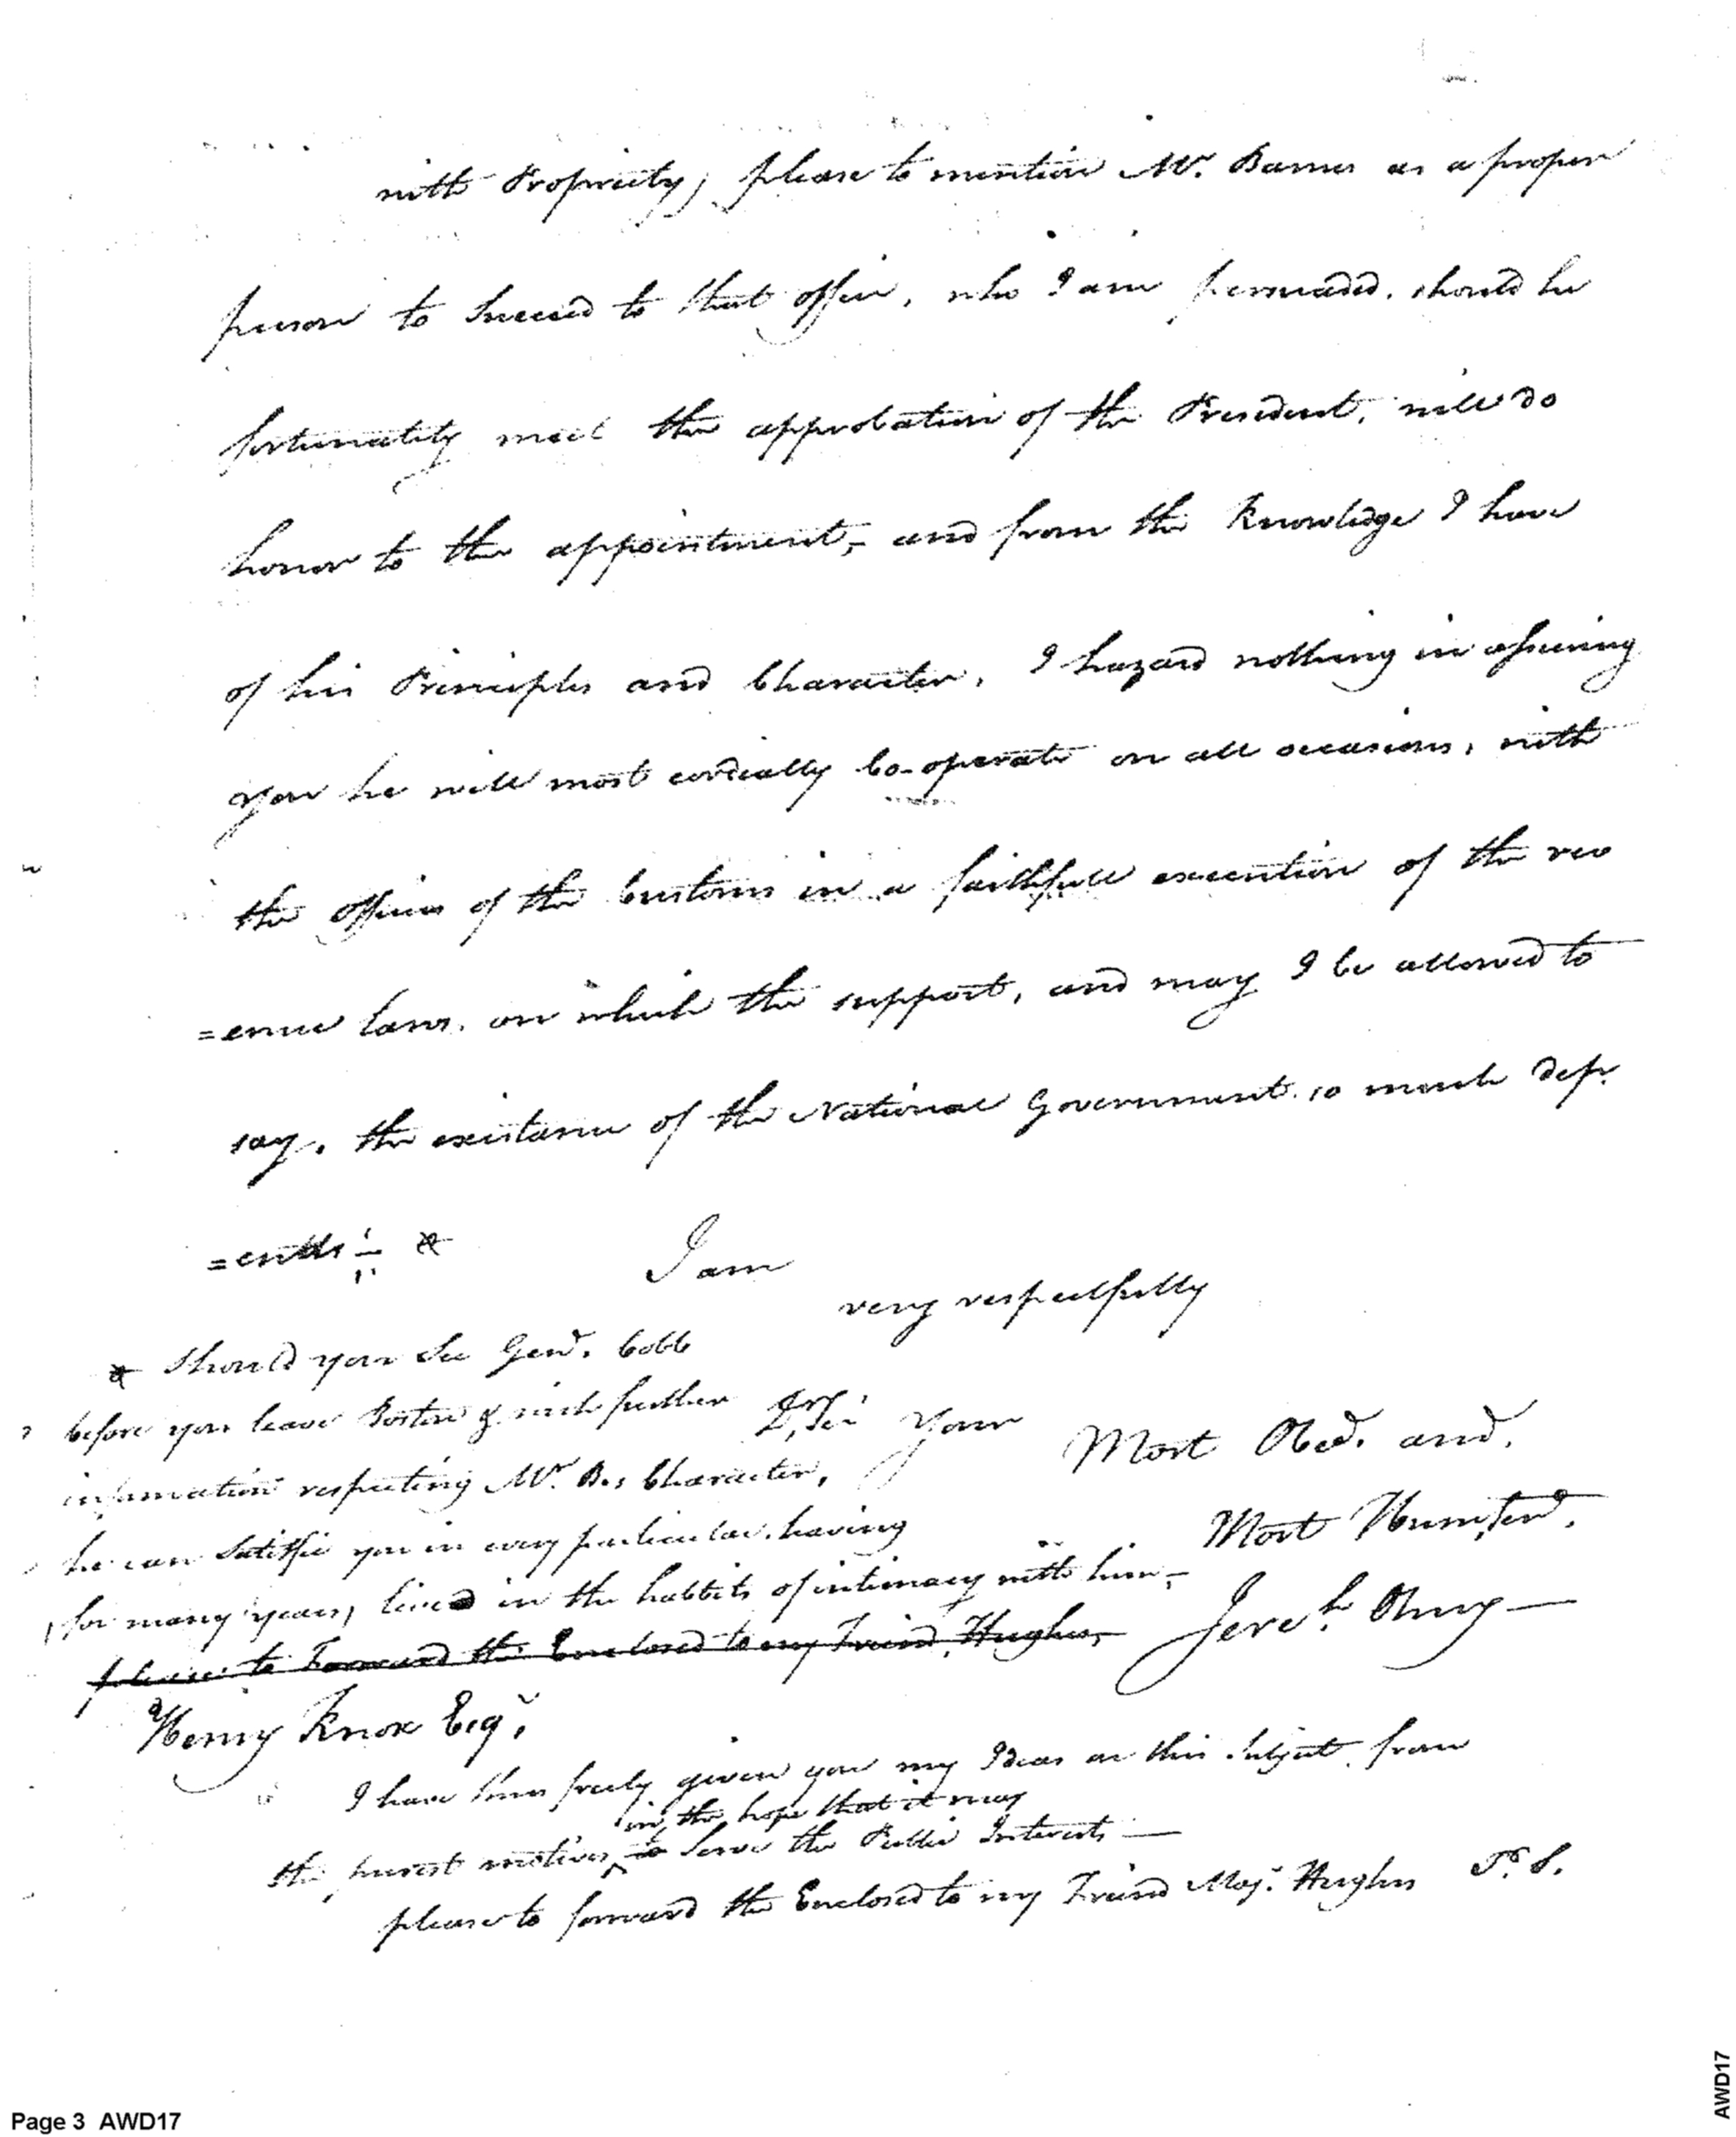 with Propriety, please to mention Mr. Barnes as a proper
person to Succeed to that office, who I am perswaded, should he
fortunately meet the approbation of the President, will do
honor to the appointment,- and from the Knowledge I have
of his Principles and Character, I hazard nothing in assuring
you he will most cordially Co-operate on all occasions, with
the Officers of the Customs in a faithfull execution of the rev
=enue Laws, on which the support, and may I be allowed to
say, the existance of the National Government so much dep
=ends
I am
very respectfully
Should you See Genl. Cobb
before you leave Boston & wish further
information respecting Mr. B.s Character,
he can Satisfie you in every particular, having
for many years, lived in the habbits of intimacy with him,-
D. Sir Your
Most Obed. and.
Most Hum. Serv.
Jereh. Olney
please to Forward the Enclosed to my Friend, Hughes,
Henry Knox Esqr.
I have thus freely given you my Ideas on this Subject from
in the hope that it may
the purest motives to Serve the Public Interest,
please to forward the Enclosed to my Friend Maj. Hughes P. S.
Page 3 AWD17
AWD17